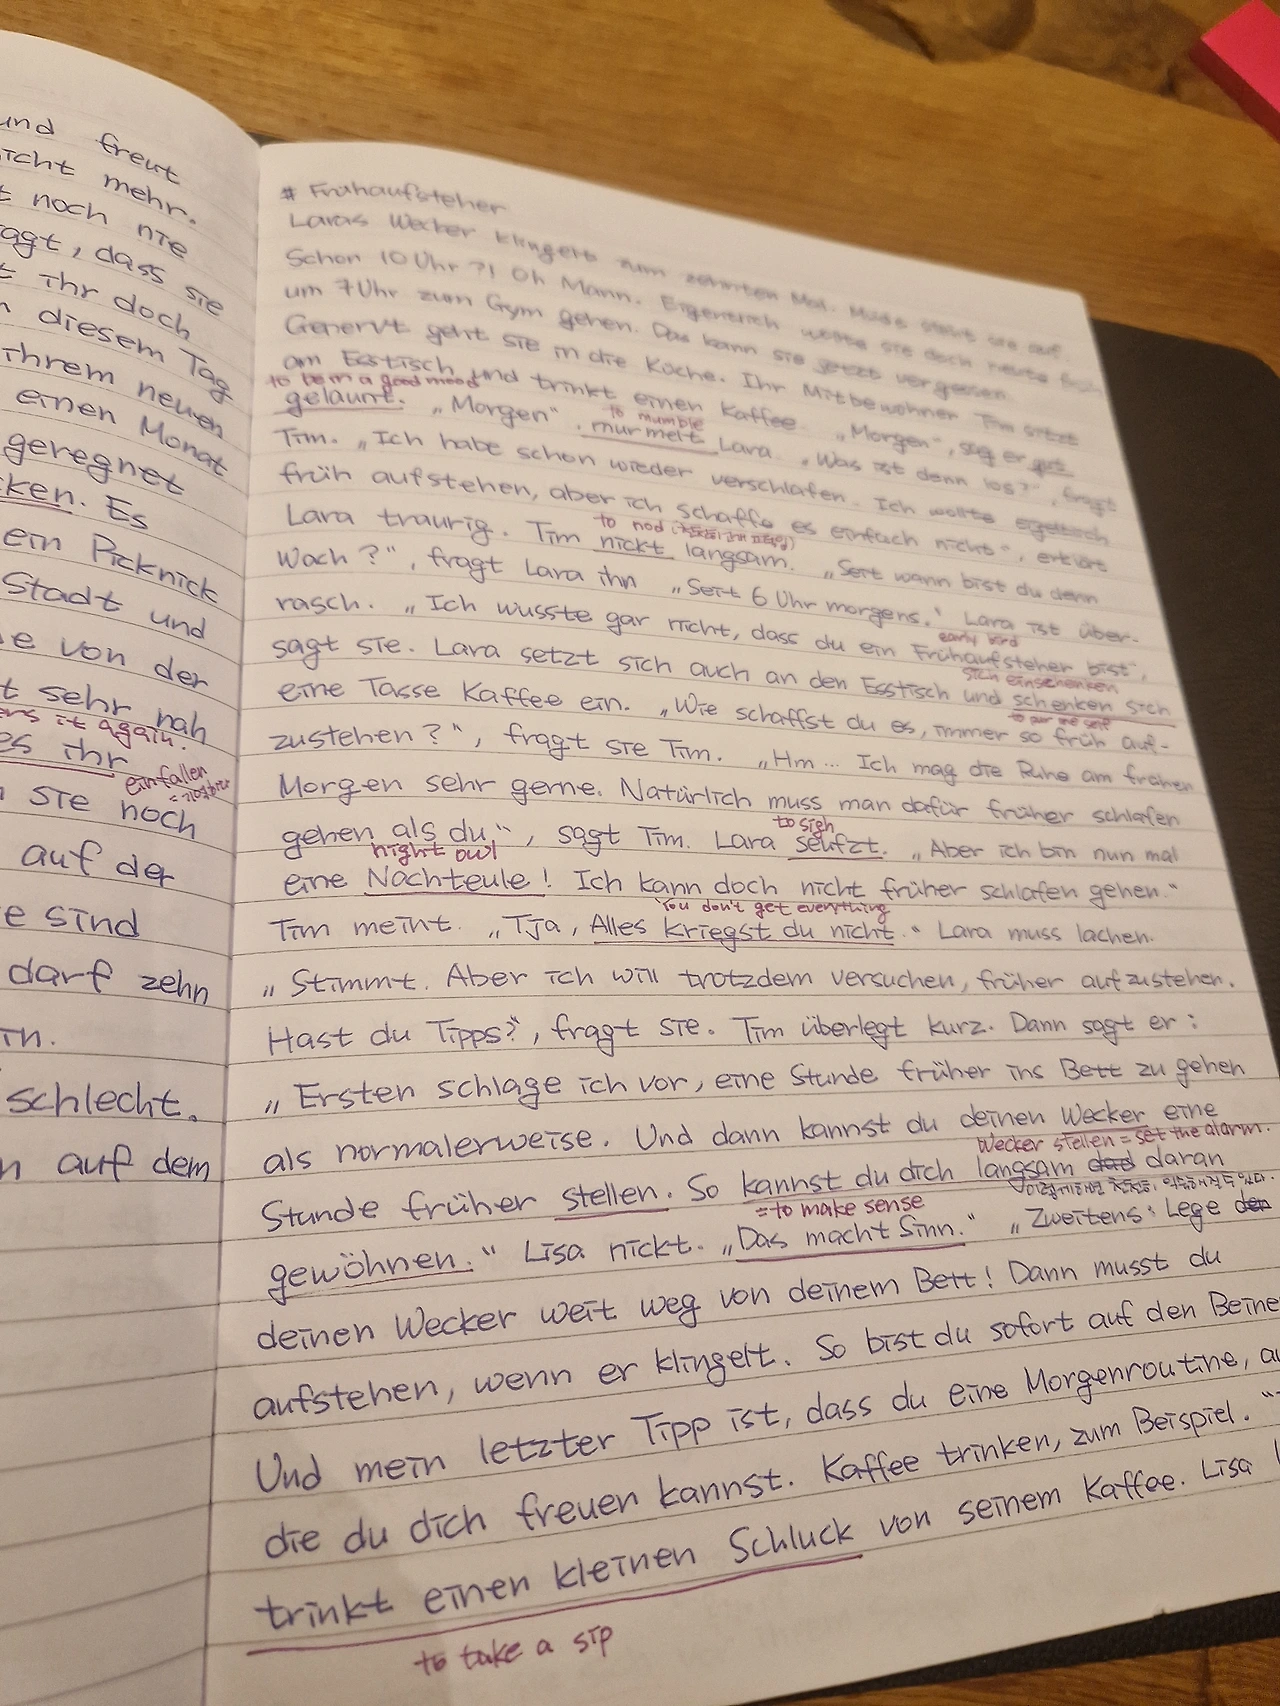 und freut
icht mehr.
t noch nie
agt, dass sie
t ihr doch
n diesem Tag
ihrem neuen
einen Monat
geregnet
cken. Es
ein Picknick
Stadt und
e von der
t sehr nah
ers it again.
es ihr
einfallen
n sie noch
auf der
e sind
darf zehn
in.
schlecht.
n auf dem
# Frühaufsteher
Laras Wecker klingelt zum zehnten Mal. Müde steht sie auf.
Schon 10 Uhr?! Oh Mann. Eigentlich wollte sie doch heute früh
um 7 Uhr zum Gym gehen. Das kann sie jetzt vergessen.
Genervt geht sie in die Küche. Ihr Mitbewohner Tim sitzt
am Esstisch und trinkt einen Kaffee. „Morgen“, sag er gut
to be in a good mood
gelaunt. „Morgen“. murmelt Lara. „Was ist denn los?“, fragt
to mumble
Tim. „Ich habe schon wieder verschlafen. Ich wollte
früh aufstehen, aber ich schaffe es einfach nicht“, erklärt
Lara traurig. Tim nickt langsam. „Seit wann bist du denn
to nod
Wach?“, fragt Lara ihn „Seit 6 Uhr morgens.“ Lara ist über-
rasch. „Ich wusste gar nicht, dass du ein Frühaufsteher bist“,
early bird
sagt sie. Lara setzt sich auch an den Esstisch und schenken sich
sich einschenken
eine Tasse Kaffee ein. „Wie schaffst du es, immer so früh auf-
zustehen?“, fragt sie Tim. „Hm... Ich mag die Ruhe am frühen
Morgen sehr gerne. Natürlich muss man dafür früher schlafen
gehen als du“, sagt Tim. Lara seufzt. „Aber ich bin nun mal
to sigh
night owl
eine Nachteule! Ich kann doch nicht früher schlafen gehen.“
You don't get everything
Tim meint. „Tja, Alles kriegst du nicht.“ Lara muss lachen.
„Stimmt. Aber ich will trotzdem versuchen, früher aufzustehen.
Hast du Tipps?“, fragt sie. Tim überlegt kurz. Dann sagt er:
„Ersten schlage ich vor, eine Stunde früher ins Bett zu gehen
als normalerweise. Und dann kannst du deinen Wecker eine
Wecker stellen = set the alarm.
Stunde früher stellen. So kannst du dich langsam daran
= to make sense
gewöhnen.“ Lisa nickt. „Das macht Sinn.“ „Zweitens: Lege den
deinen Wecker weit weg von deinem Bett! Dann musst du
aufstehen, wenn er klingelt. So bist du sofort auf den Beine
Und mein letzter Tipp ist, dass du eine Morgenroutine, au
die du dich freuen kannst. Kaffee trinken, zum Beispiel.“
trinkt einen kleinen Schluck von seinem Kaffee. Lisa
to take a sip